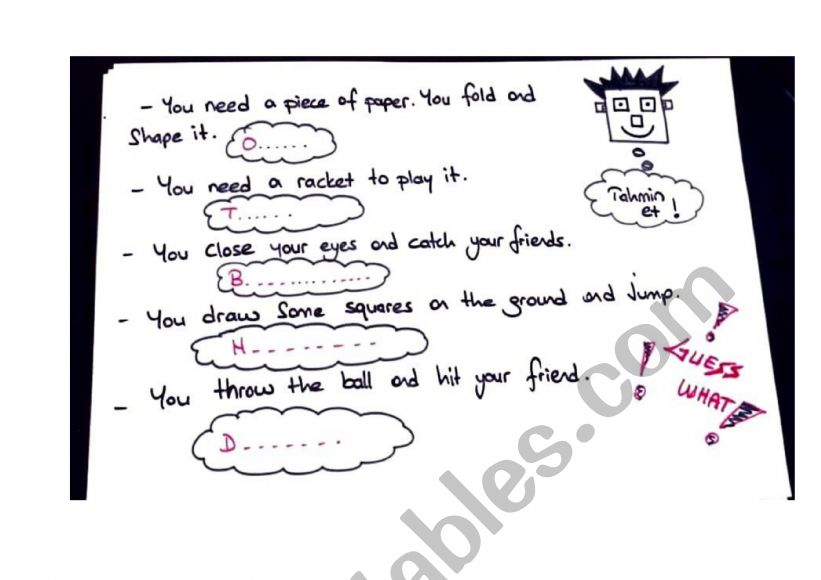 - You need a piece of paper. You fold and
Shape it.
O......
- You need a racket to play it.
T......
- You close your eyes and catch your friends.
B..............
- You draw some squares on the ground and jump.
H--------
- You throw the ball and hit your friend.
D-------
Tahmin
et !
GUESS
WHAT
ables.com